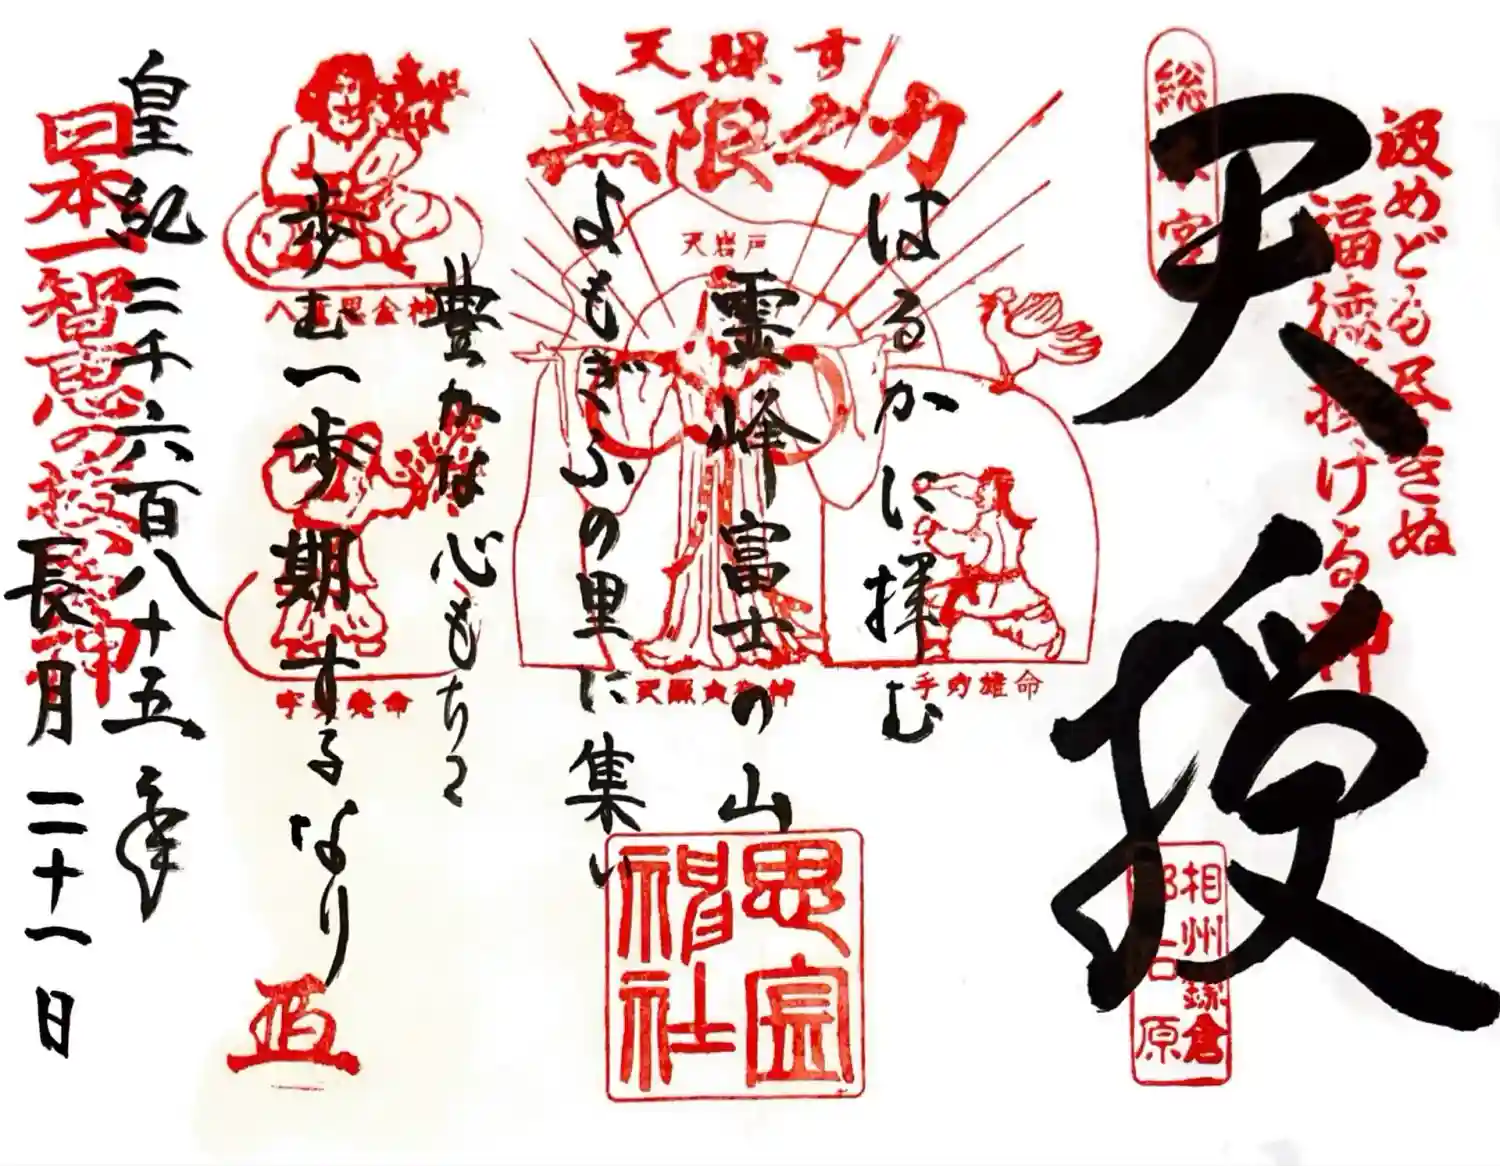 汲めども尽きぬ
福徳授ける神
総本宮
天授
相州鎌倉
郡石原
天照す
無限之力
天岩戸
手力雄命
天照大御神
はるかに揮む
霊峰富士の山
よもぎふの里に集い
豊かな心もちて
歩む一歩期するなり
思金神社
八意思金神
宇受売命
日本一智恵の授かる神
皇紀二千六百八十五年
長月二十一日